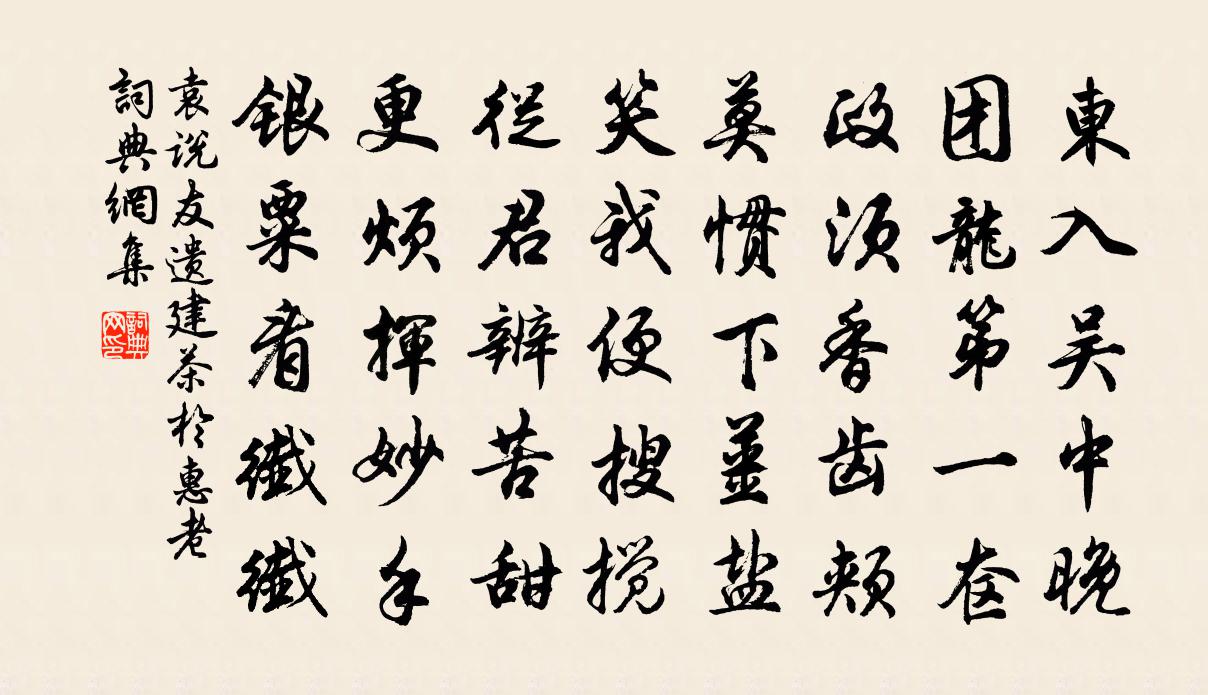 東入吴中晚
团龍第一奁
政须香齿颊
莫惯下薑盐
笑我便搜搅
從君辨苦甜
更烦揮妙手
银粟看纖纖
袁说友遗建茶於惠老
詞典網集
詞典网印